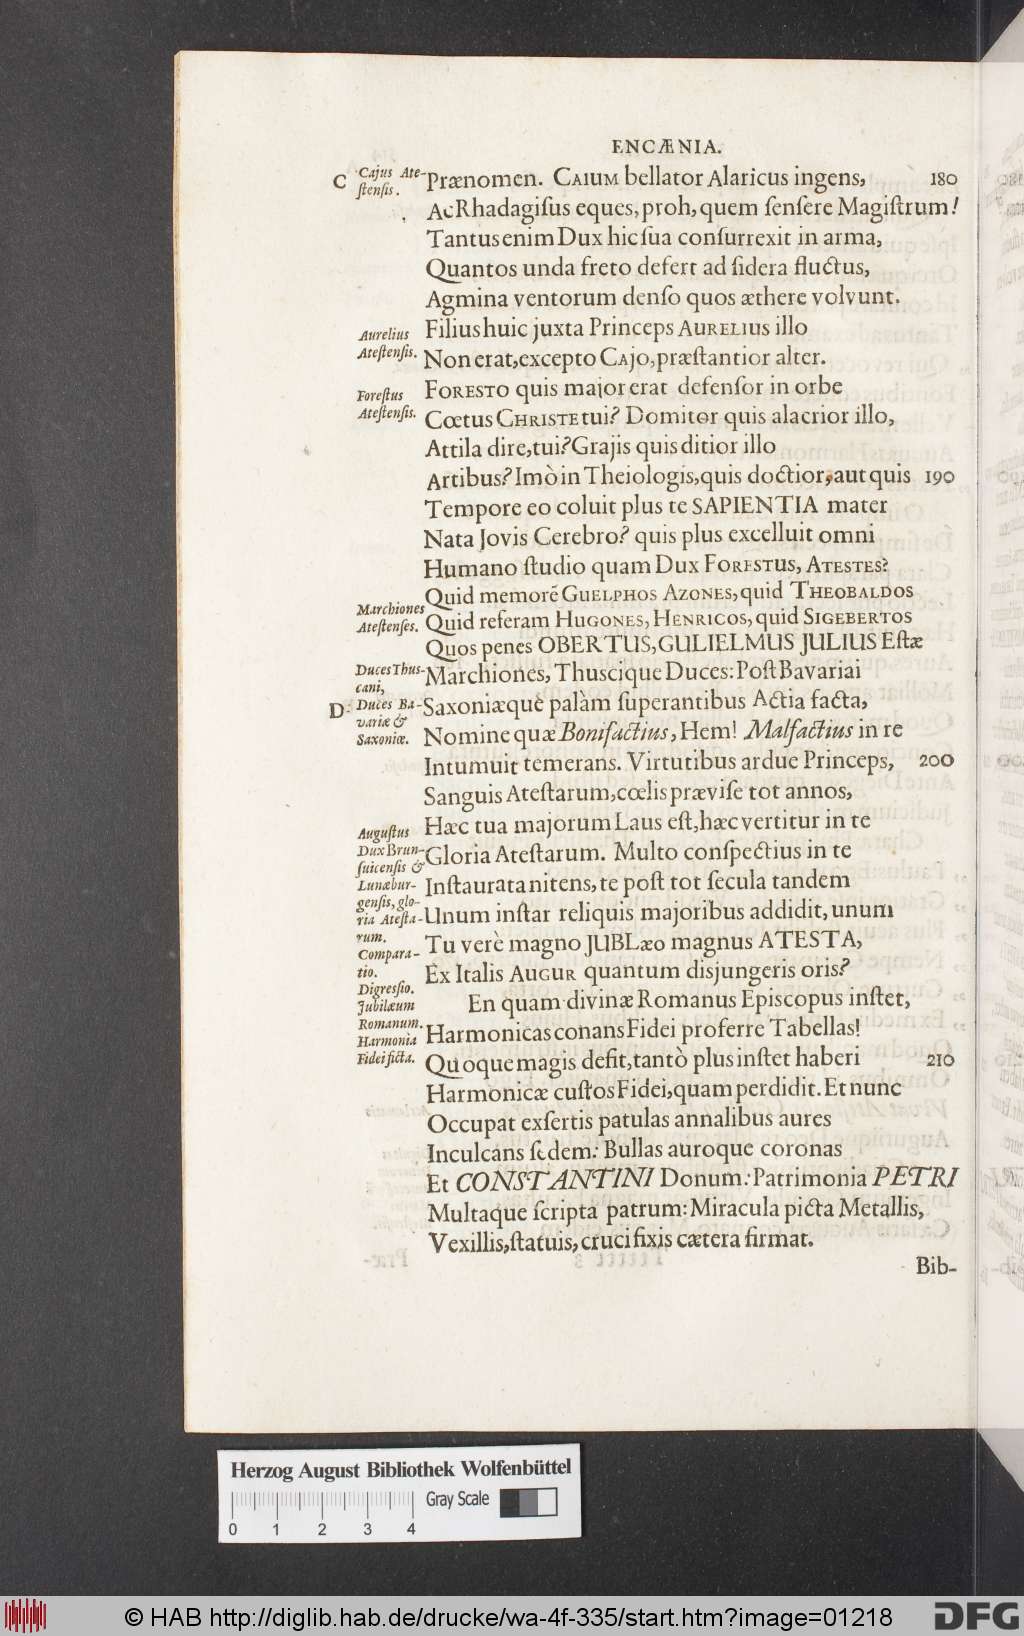 ENCÆNIA.
C Cajus Ate-
ſtenſis.
Prænomen. CAIUM bellator Alaricus ingens, 180
Ac Rhadagiſus eques, proh, quem ſenſere Magiſtrum!
Tantus enim Dux hic ſua conſurrexit in arma,
Quantos unda freto defert ad ſidera fluctus,
Agmina ventorum denſo quos æthere volvunt.
Aurelius
Ateſtenſis.
Filius huic juxta Princeps AURELIUS illo
Non erat, excepto CAJO, præſtantior alter.
Foreſtus
Ateſtenſis.
FORESTO quis major erat defenſor in orbe
Cœtus CHRISTE tui? Domitor quis alacrior illo,
Attila dire, tui? Grajis quis ditior illo
Artibus? Imò in Theiologis, quis doctior, aut quis 190
Tempore eo coluit plus te SAPIENTIA mater
Nata Jovis Cerebro? quis plus excelluit omni
Humano ſtudio quam Dux FORESTUS, ATESTES?
Quid memorẽ GUELPHOS AZONES, quid THEOBALDOS
Marchiones
Ateſtenſes.
Quid referam HUGONES, HENRICOS, quid SIGEBERTOS
Quos penes OBERTUS, GULIELMUS JULIUS Eſtæ
Duces Thus-
cani,
Marchiones, Thuscique Duces: Poſt Bavariai
D Duces Ba-
variæ &
Saxoniæ.
Saxoniæquè palàm ſuperantibus Actia facta,
Nomine quæ Bonifactius, Hem! Malfactius in re
Intumuit temerans. Virtutibus ardue Princeps, 200
Sanguis Ateſtarum, cœlis præviſe tot annos,
Auguſtus
Dux Brun-
ſuicenſis &
Lunæbur-
genſis, glo-
ria Ateſta-
rum.
Hæc tua majorum Laus eſt, hæc vertitur in te
Gloria Ateſtarum. Multo conſpectius in te
Inſtaurata nitens, te poſt tot ſecula tandem
Unum inſtar reliquis majoribus addidit, unum
Tu verè magno JUBLæo magnus ATESTA,
Compara-
tio.
Ex Italis AUGUR quantum disjungeris oris?
Digreſſio.
Jubilæum
Romanum.
Harmonia
Fidei ficta.
En quam divinæ Romanus Episcopus inſtet,
Harmonicas conans Fidei proferre Tabellas!
Quoque magis defit, tantò plus inſtet haberi 210
Harmonicæ cuſtos Fidei, quam perdidit. Et nunc
Occupat exſertis patulas annalibus aures
Inculcans ſedem: Bullas auroque coronas
Et CONSTANTINI Donum: Patrimonia PETRI
Multaque ſcripta patrum: Miracula picta Metallis,
Vexillis, ſtatuis, cruci fixis cætera firmat.
Bib-
Herzog August Bibliothek Wolfenbüttel
Gray Scale
0 1 2 3 4
© HAB http://diglib.hab.de/drucke/wa-4f-335/start.htm?image=01218
DFG